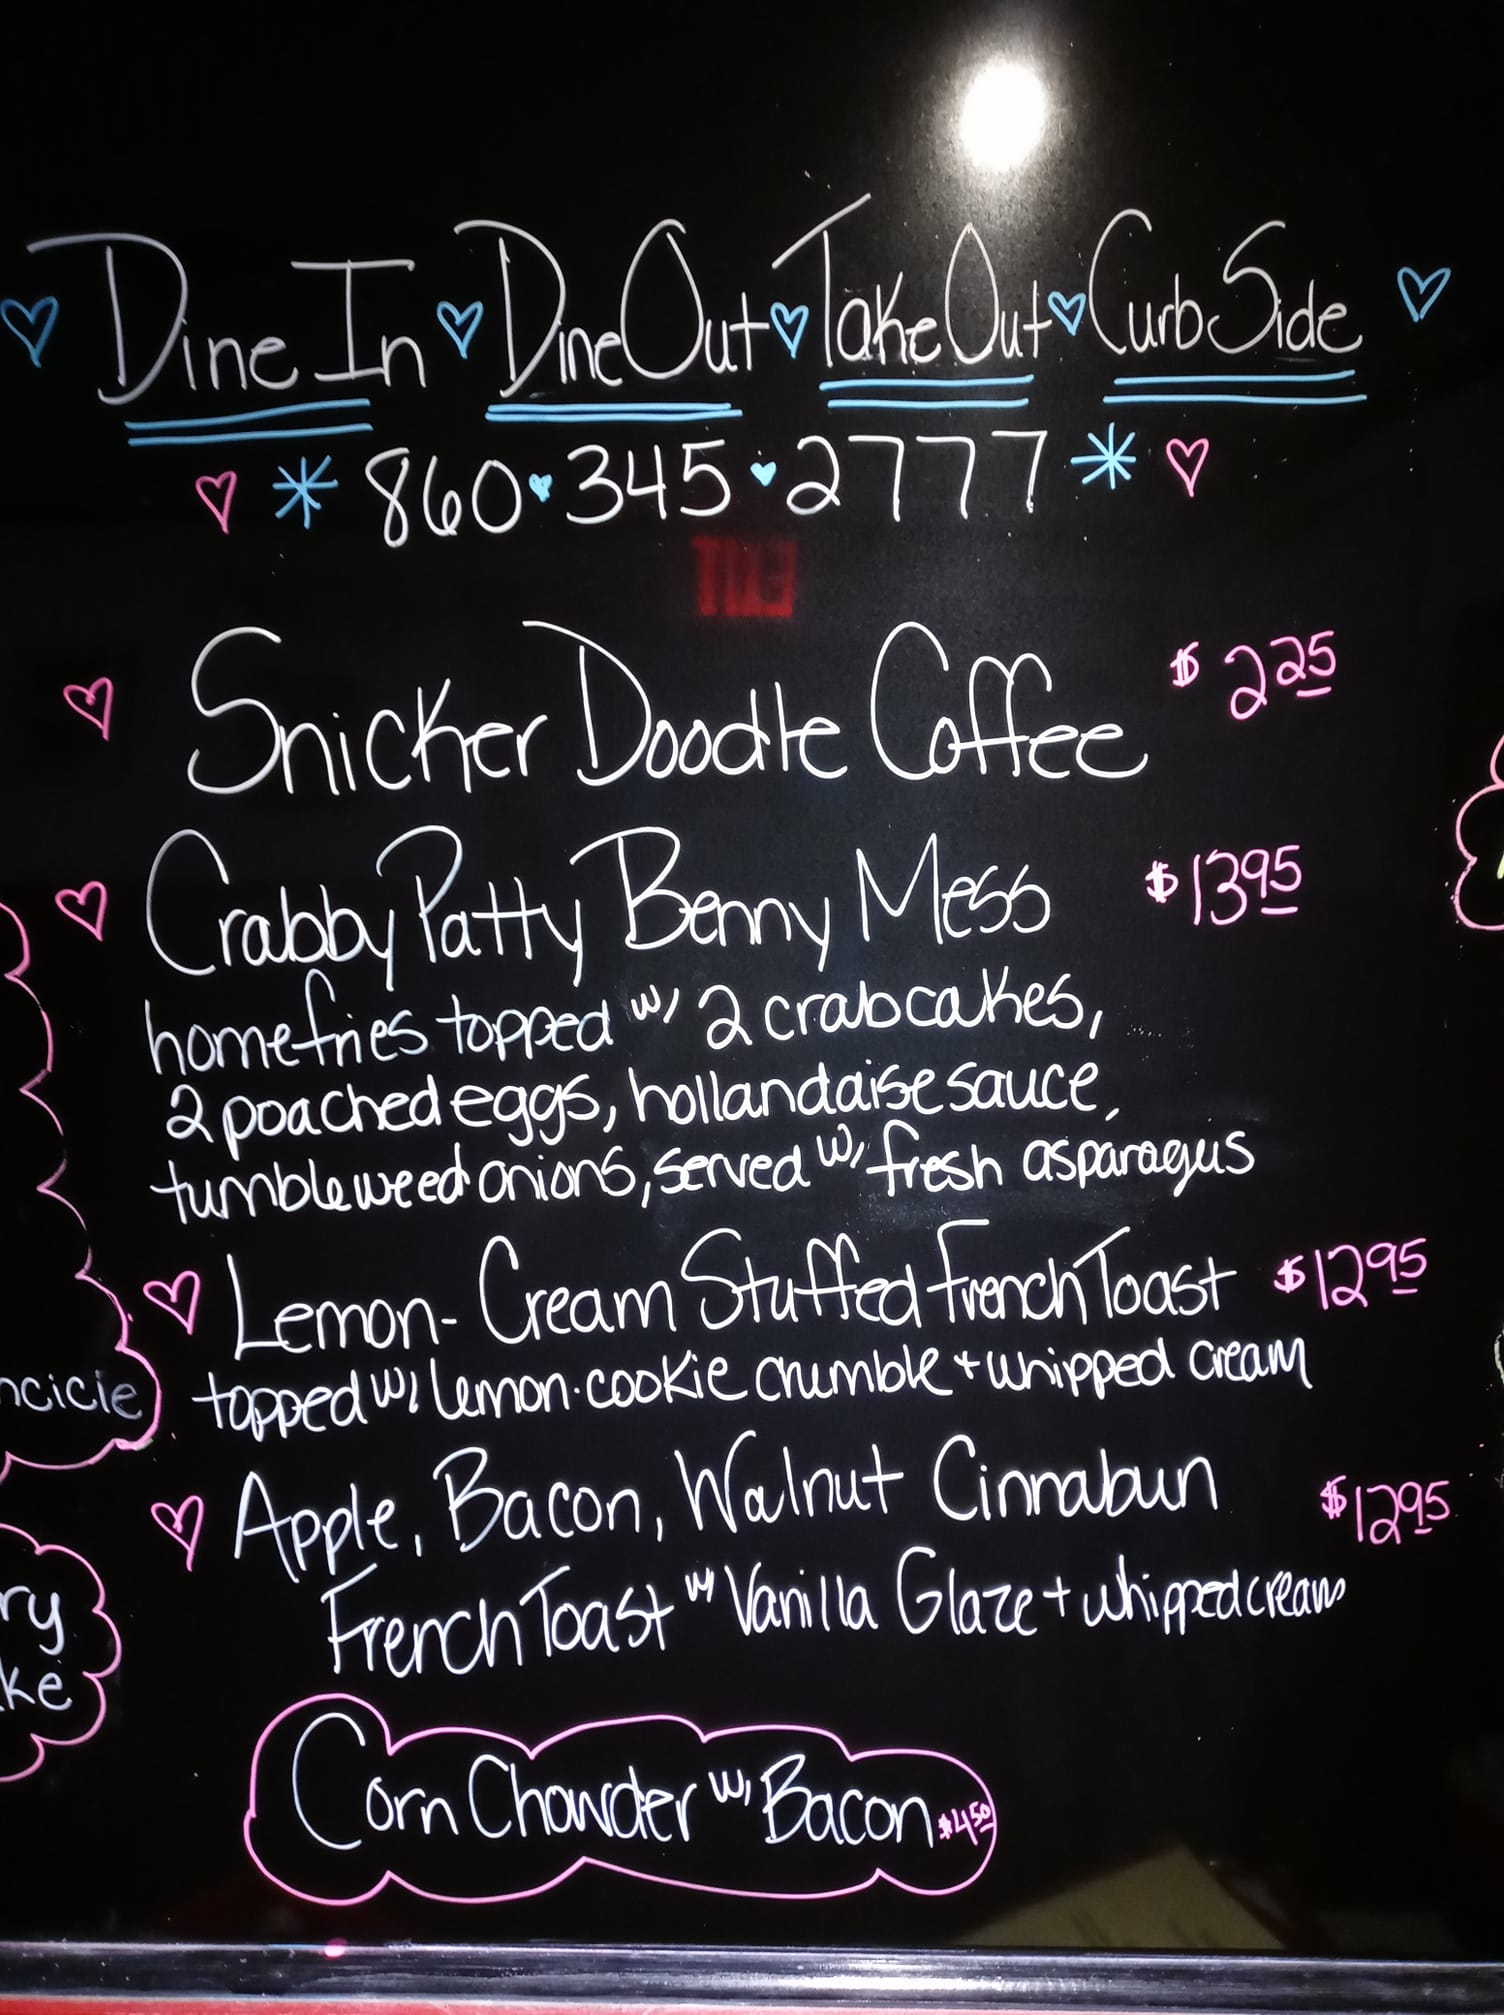 Dine In Dine Out Take Out Curb Side
860 345 2777
Snicker Doodle Coffee $2.25
Crabby Patty Benny Mess $13.95
homefries topped w/ 2 crabcakes,
2 poached eggs, hollandaise sauce,
tumbleweed onions, served w/ fresh asparagus
Lemon-Cream Stuffed French Toast $12.95
topped w/ lemon-cookie crumble + whipped cream
Apple, Bacon, Walnut Cinnabun $12.95
French Toast w/ Vanilla Glaze + whipped cream
Corn Chowder w/ Bacon $4.50